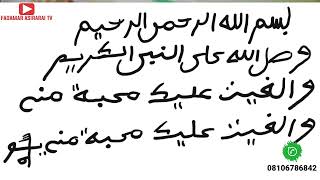 FADAMAR ASIRARAI TV
بسم الله الرحمن الرحيم
وصل الله على النبي الكريم
والقيت عليك محبة مني
والقيت عليك محبة مني
08106786842